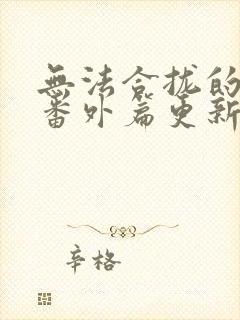 無法合拢的
番外篇更新
辛格